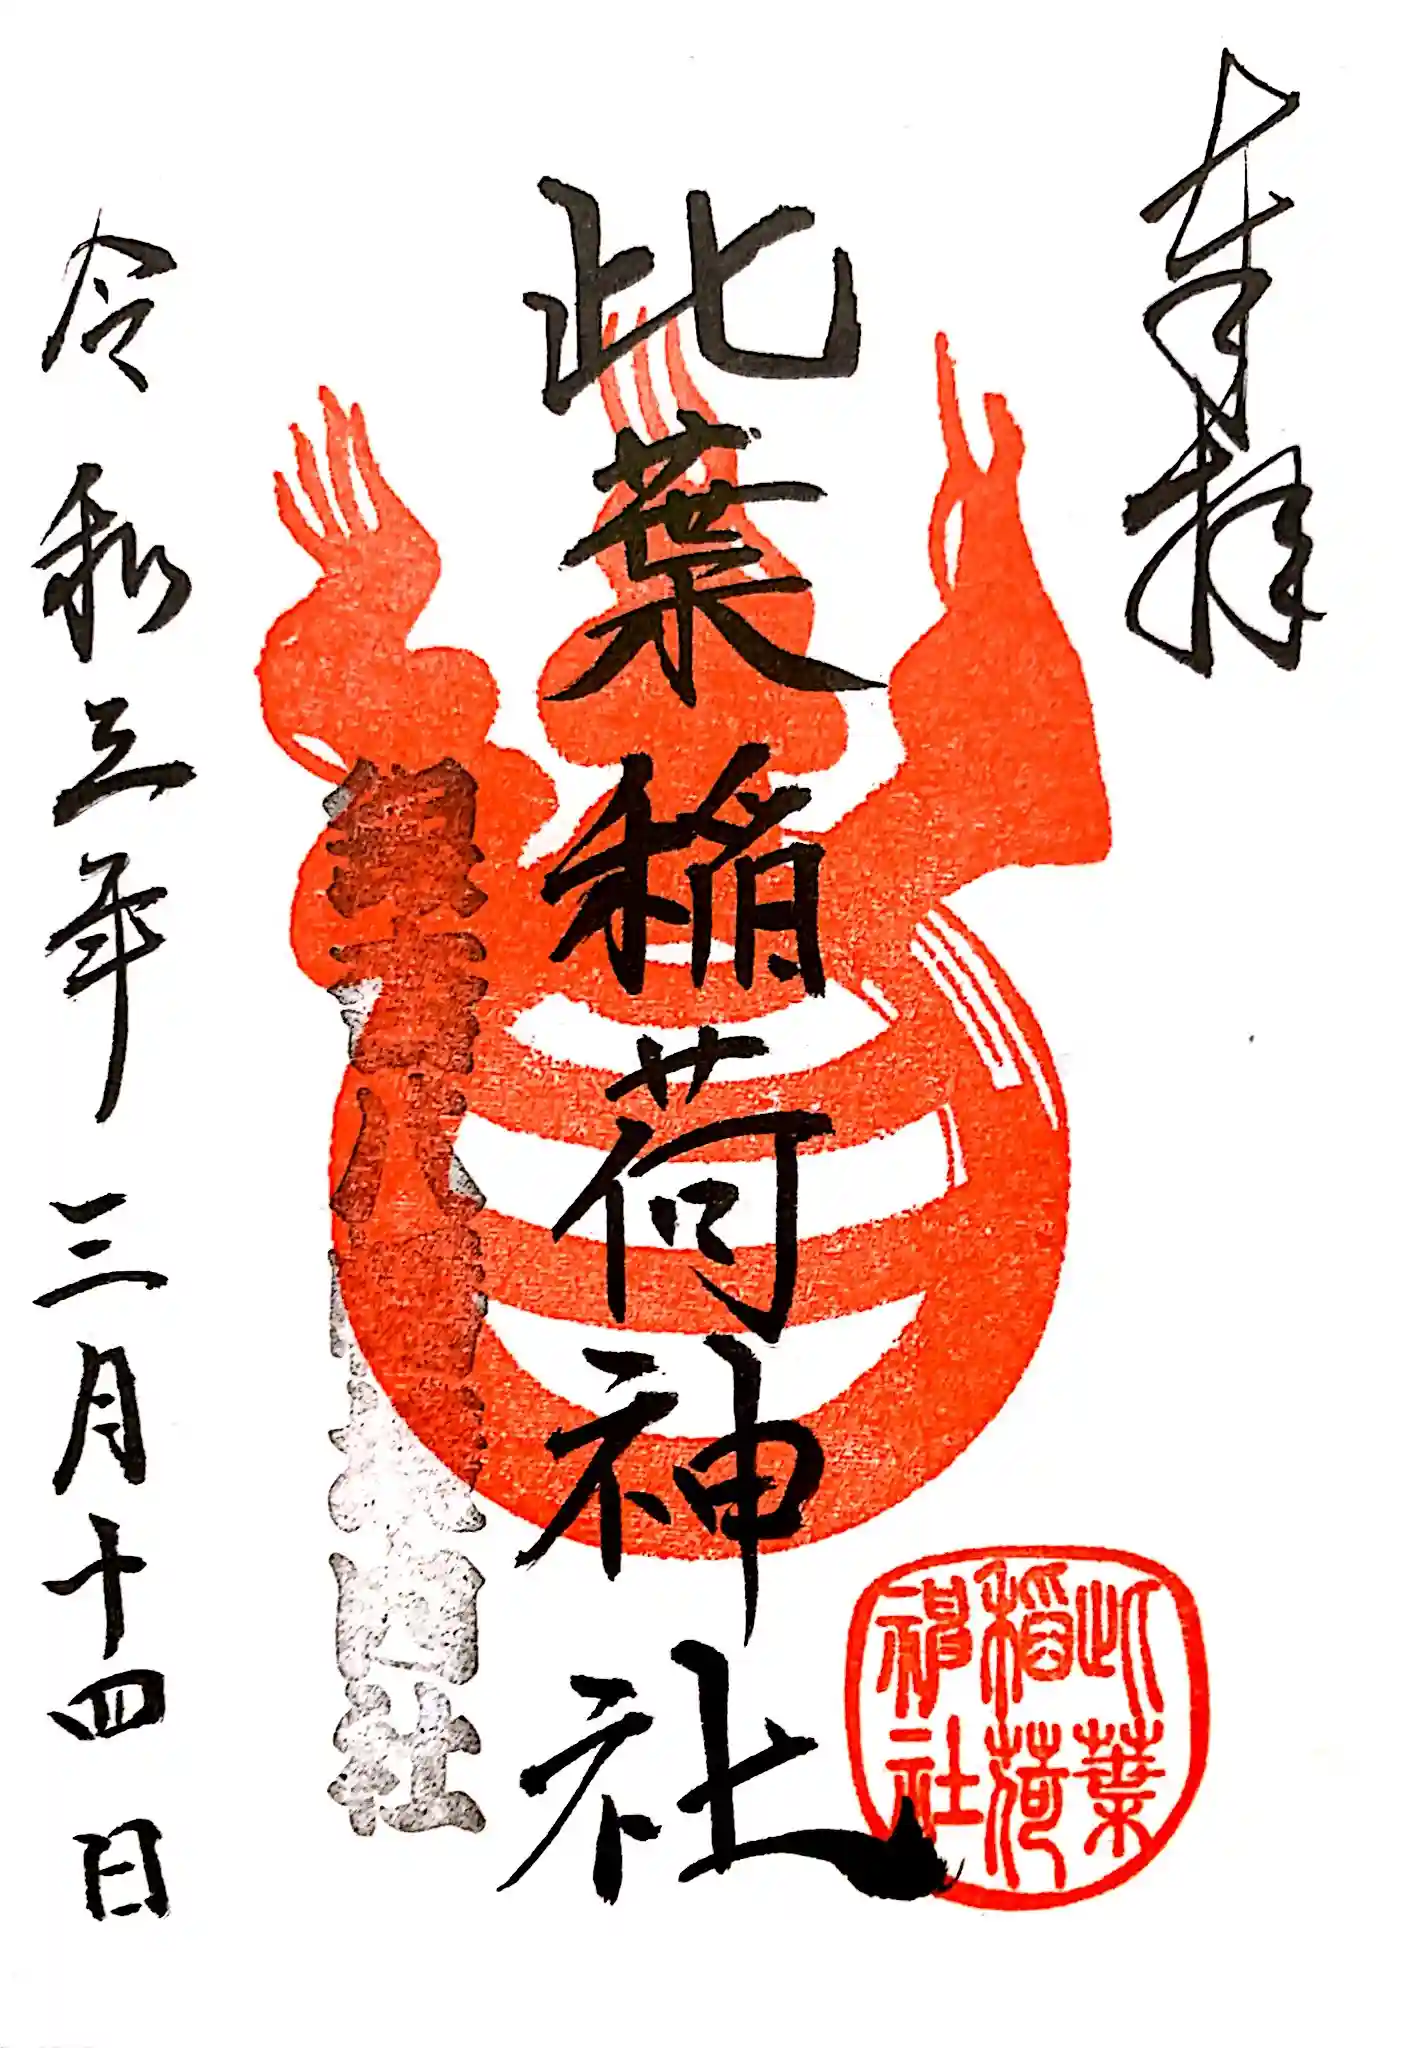 奉拝
此葉稲荷神社
此葉
稲荷
神社
内社
令和三年三月十四日